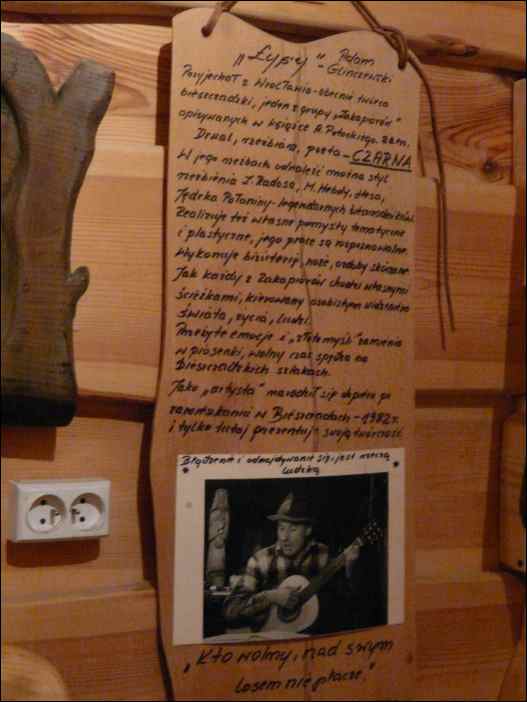 „Łysy" - Adam
Glinczewski
Przyjechał z Wrocławia - obecnie twórca
bieszczadzki, jeden z grupy „Zakapiorów"
opisywanych w książce A. Potockiego.
Drwal, rzeźbiarz, poeta - CZARNA
W jego rzeźbach odnaleźć można styl
rzeźbienia Z. Radosa, M. Hebdy,
Jędrka Połoniny - legendarnych bieszczadzkich
Realizuje też własne pomysły tematyczne
i plastyczne, jego prace są rozpoznawalne.
Wykonuje biżuterię, noże, ozdoby skórzane
Jak każdy z Zakapiorów chodzi własnymi
ścieżkami, kierowany osobistym widzeniem
świata, życia, ludzi.
Przeżyte emocje i „złote myśli" zamienia
w piosenki, wolny czas spędza na
Bieszczadzkich szlakach.
Jako „artysta" narodził się dopiero po
zamieszkaniu w Bieszczadach - 1982 r.
i tylko tutaj prezentuje swoją twórczość
Błądzenie i odnajdywanie się, jest rzeczą
ludzką
„Kto wolny, nad swym
losem nie płacze."